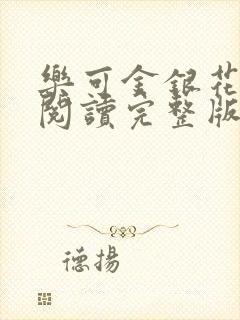 樂可金銀花
閱讀完整版
德揚